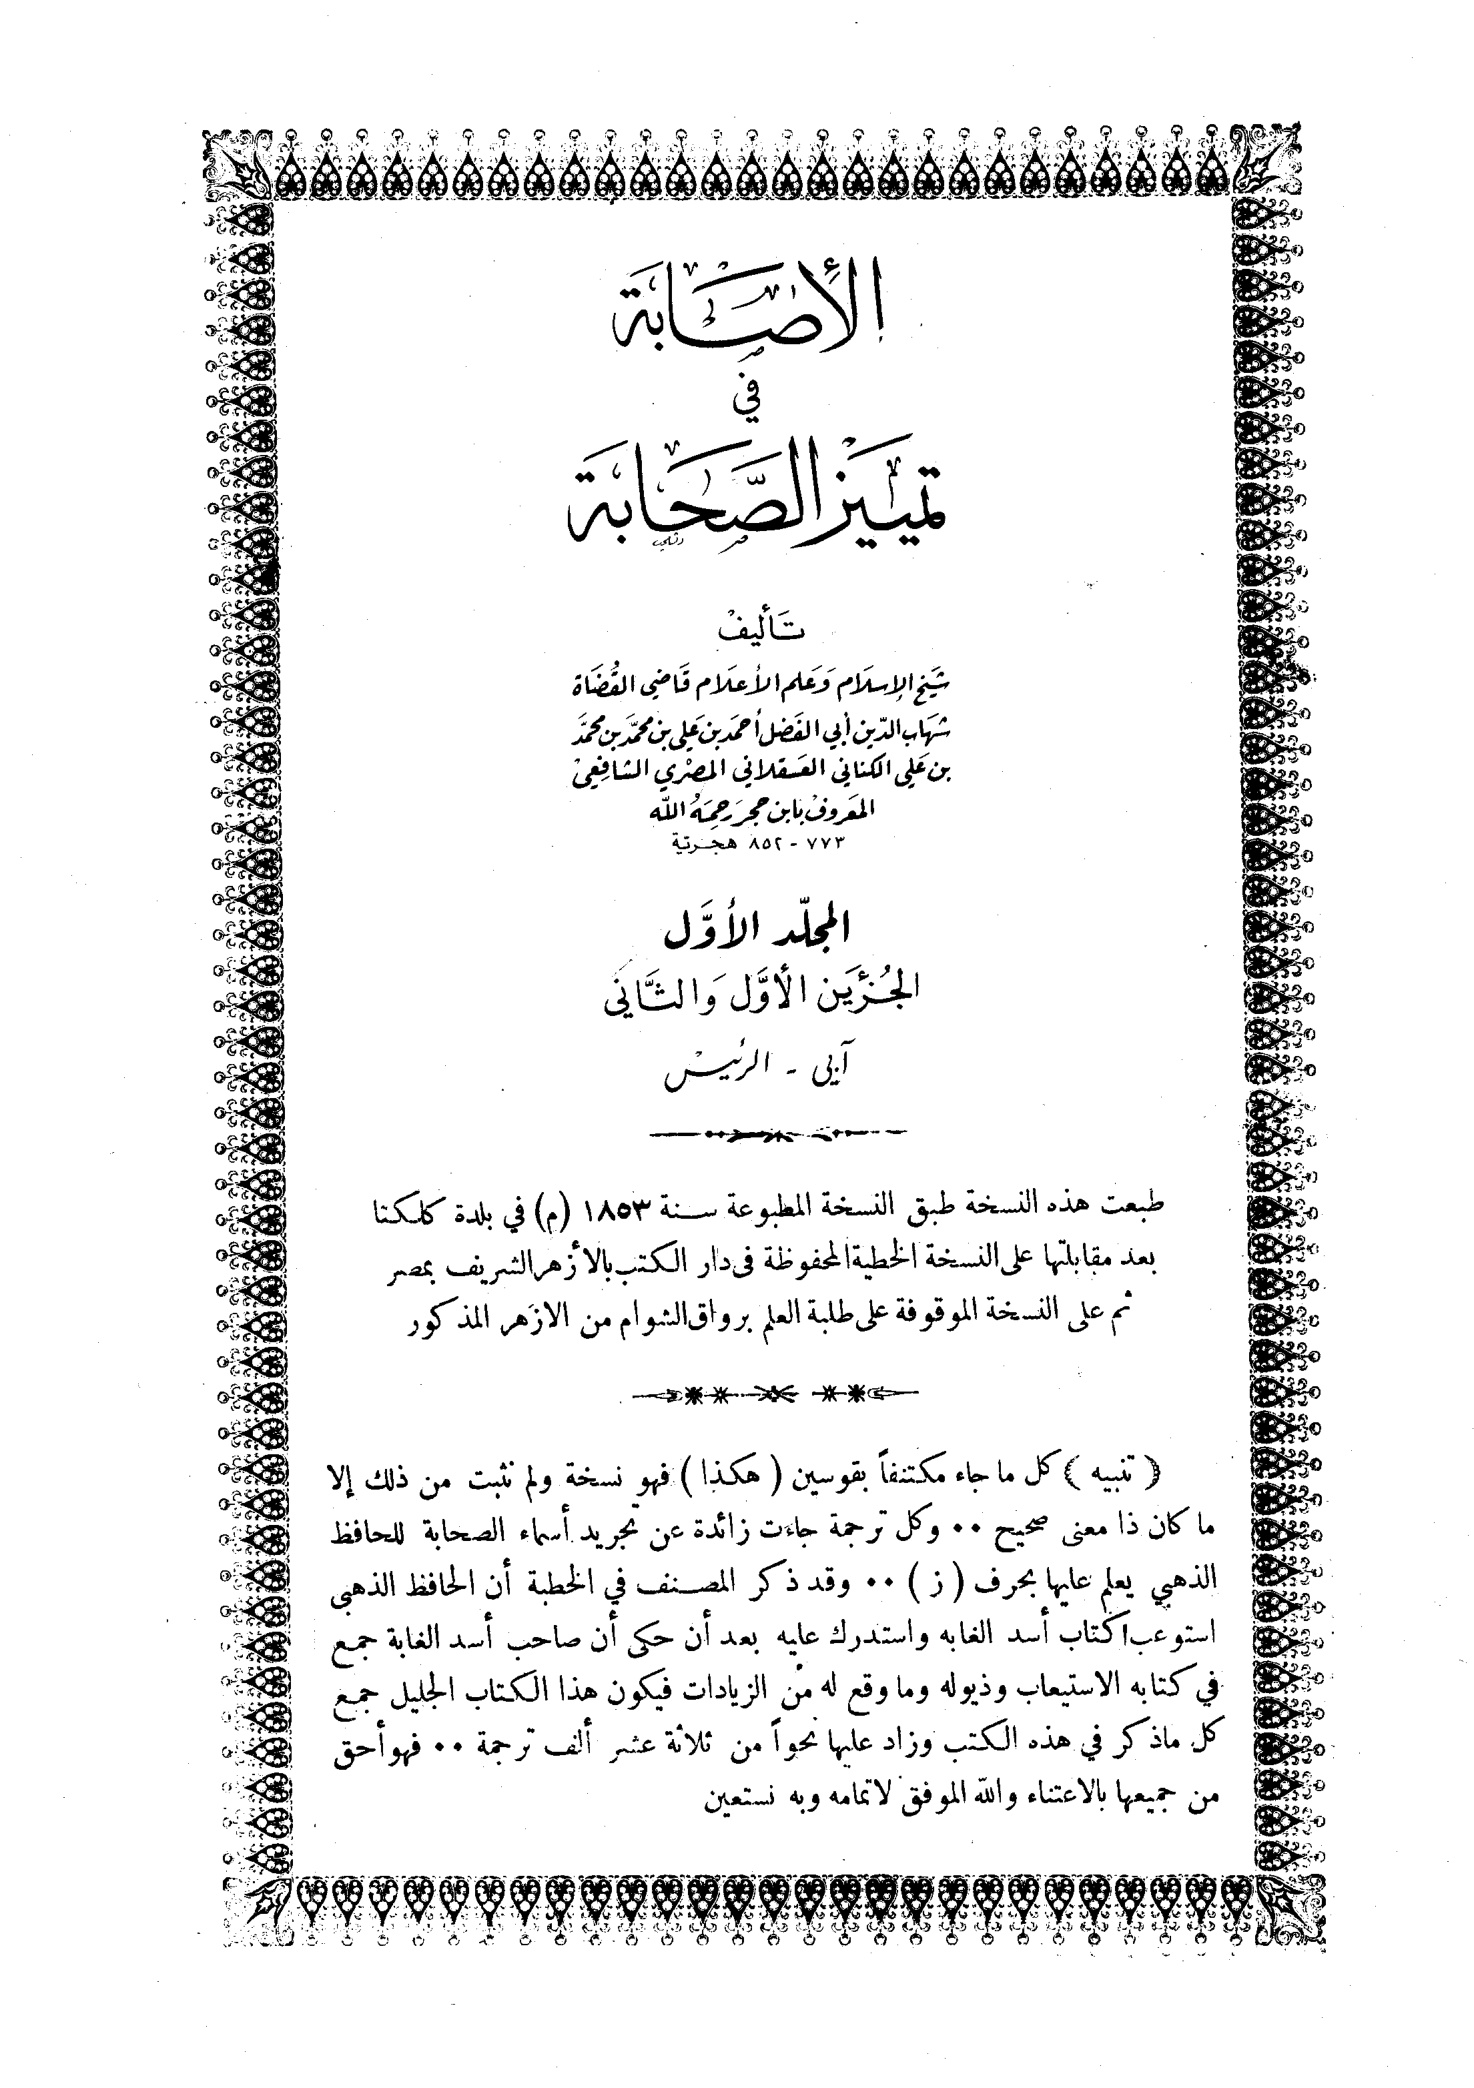 الإصابة
في
تمييز الصحابة
تأليف
شيخ الإسلام وعلم الأعلام قاضي القضاة
شهاب الدين أبي الفضل أحمد بن علي بن محمد بن محمد
بن علي الكناني العسقلاني المصري الشافعي
المعروف بابن حجر رحمه الله
٧٧٣ - ٨٥٢ هجرية
المجلّد الأوَّل
الجُزئَين الأوَّل وَالثَّاني
آبي - الرئيس
طبعت هذه النسخة طبق النسخة المطبوعة سنة ١٨٥٣ (م) في بلدة كلكتا
بعد مقابلتها على النسخة الخطية المحفوظة في دار الكتب بالأزهر الشريف بمصر
ثم على النسخة الموقوفة على طلبة العلم برواق الشوام من الازهر المذكور
( تنبيه ) كل ما جاء مكتنفاً بقوسين ( هكذا ) فهو نسخة ولم نثبت من ذلك إلا
ما كان ذا معنى صحيح ٠٠ وكل ترجمة جاءت زائدة عن تجريد أسماء الصحابة للحافظ
الذهبي يعلم عليها بحرف ( ز ) ٠٠ وقد ذكر المصنف في الخطبة أن الحافظ الذهبي
استوعب اكتاب أسد الغابه واستدرك عليه بعد أن حكى أن صاحب أسد الغابة جمع
في كتابه الاستيعاب وذيوله وما وقع له من الزيادات فيكون هذا الكتاب الجليل جمع
كل ماذكر في هذه الكتب وزاد عليها نحواً من ثلاثة عشر ألف ترجمة ٠٠ فهو أحق
من جميعها بالاعتناء والله الموفق لاتمامه وبه نستعين